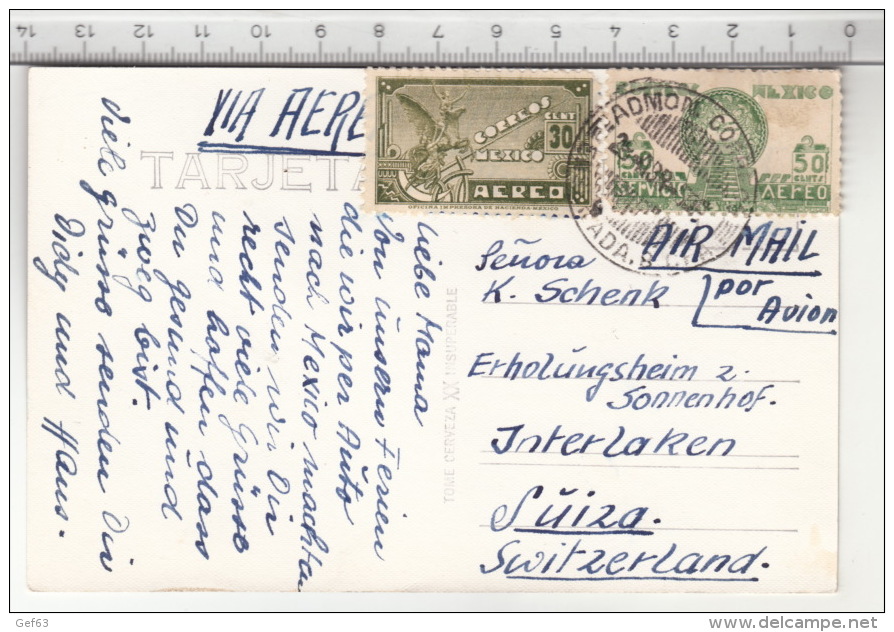 14 13 12 11 10 9 8 7 6 5 4 3 2 1 0
VIA AERE
TARJETA
CORREOS
CENT
30
MEXICO
AEREO
OFICINA IMPRESORA DE HACIENDA-MEXICO
MEXICO
50
CENTS
SERVICIO
AEREO
ADMON
CO
AIR MAIL
por
Avion
Señora
K. Schenk
Erholŭngsheim z.
Sonnenhof.
Interlaken
Sŭiza.
Switzerland.
TOME CERVEZA XX INSUPERABLE
Liebe Mama
Von ŭnseren Ferien
die wir per Aŭto
nach Mexico machten
senden wir Dir
recht viele Grüsse
und hoffen dass
Du gesund und
zweg bist.
Viele Grüsse senden Dir
Dich und Hans.
Gef63